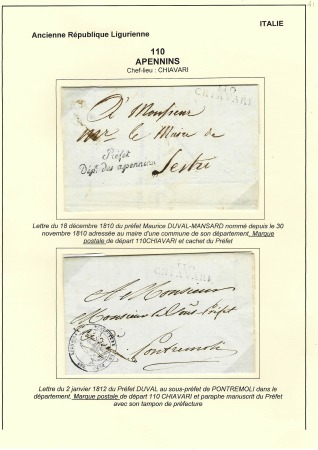 ITALIE
Ancienne République Ligurienne
110
APENNINS
Chef-lieu : CHIAVARI
110
CHIAVARI
A Monsieur
le Maire de
Sestri
Préfet
Dépt. des apennins
Lettre du 18 décembre 1810 du préfet Maurice DUVAL-MANSARD nommé depuis le 30
novembre 1810 adressée au maire d'une commune de son département, Marque
postale de départ 110CHIAVARI et cachet du Préfet
110
CHIAVARI
A Monsieur
Monsieur le Sous-Préfet
Pontremoli
Lettre du 2 janvier 1812 du Préfet DUVAL au sous-préfet de PONTREMOLI dans le
département, Marque postale de départ 110 CHIAVARI et paraphe manuscrit du Préfet
avec son tampon de préfecture